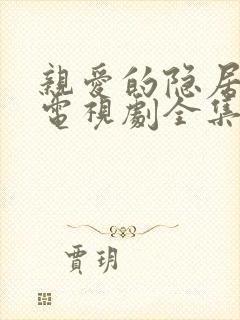 親愛的隐居
電視劇全集
賈玥